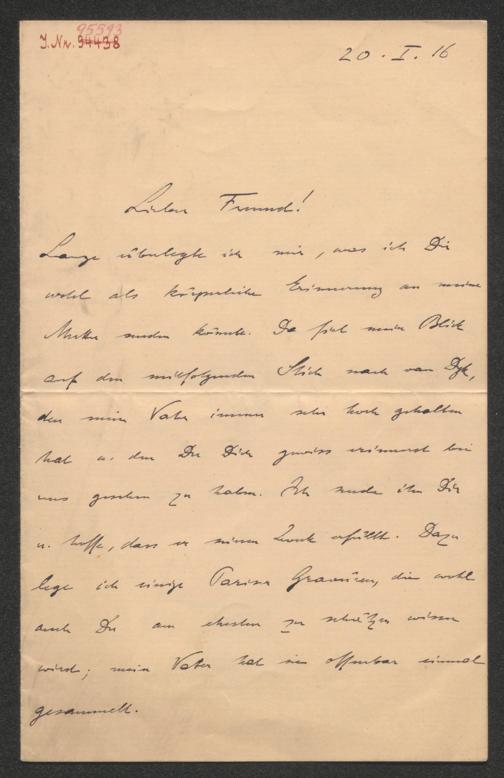 95593
J.Nr. 94438
20. I. 16
Lieber Freund!
Lange überlegte ich mir, was ich Dir
wohl als körperliche Erinnerung an meine
Mutter senden könnte. Da fiel mein Blick
auf den mitfolgenden Stich nach van Dyk,
den mein Vater immer sehr hoch gehalten
hat u. den Du Dich gewiss erinnerst bei
uns gesehen zu haben. Ich sende ihn Dir
u. hoffe, dass er seinen Zweck erfüllt. Dazu
lege ich einige Pariser Gravüren, die wohl
auch Du am ehesten zu schätzen wissen
wirst; mein Vater hat sie offenbar einmal
gesammelt.